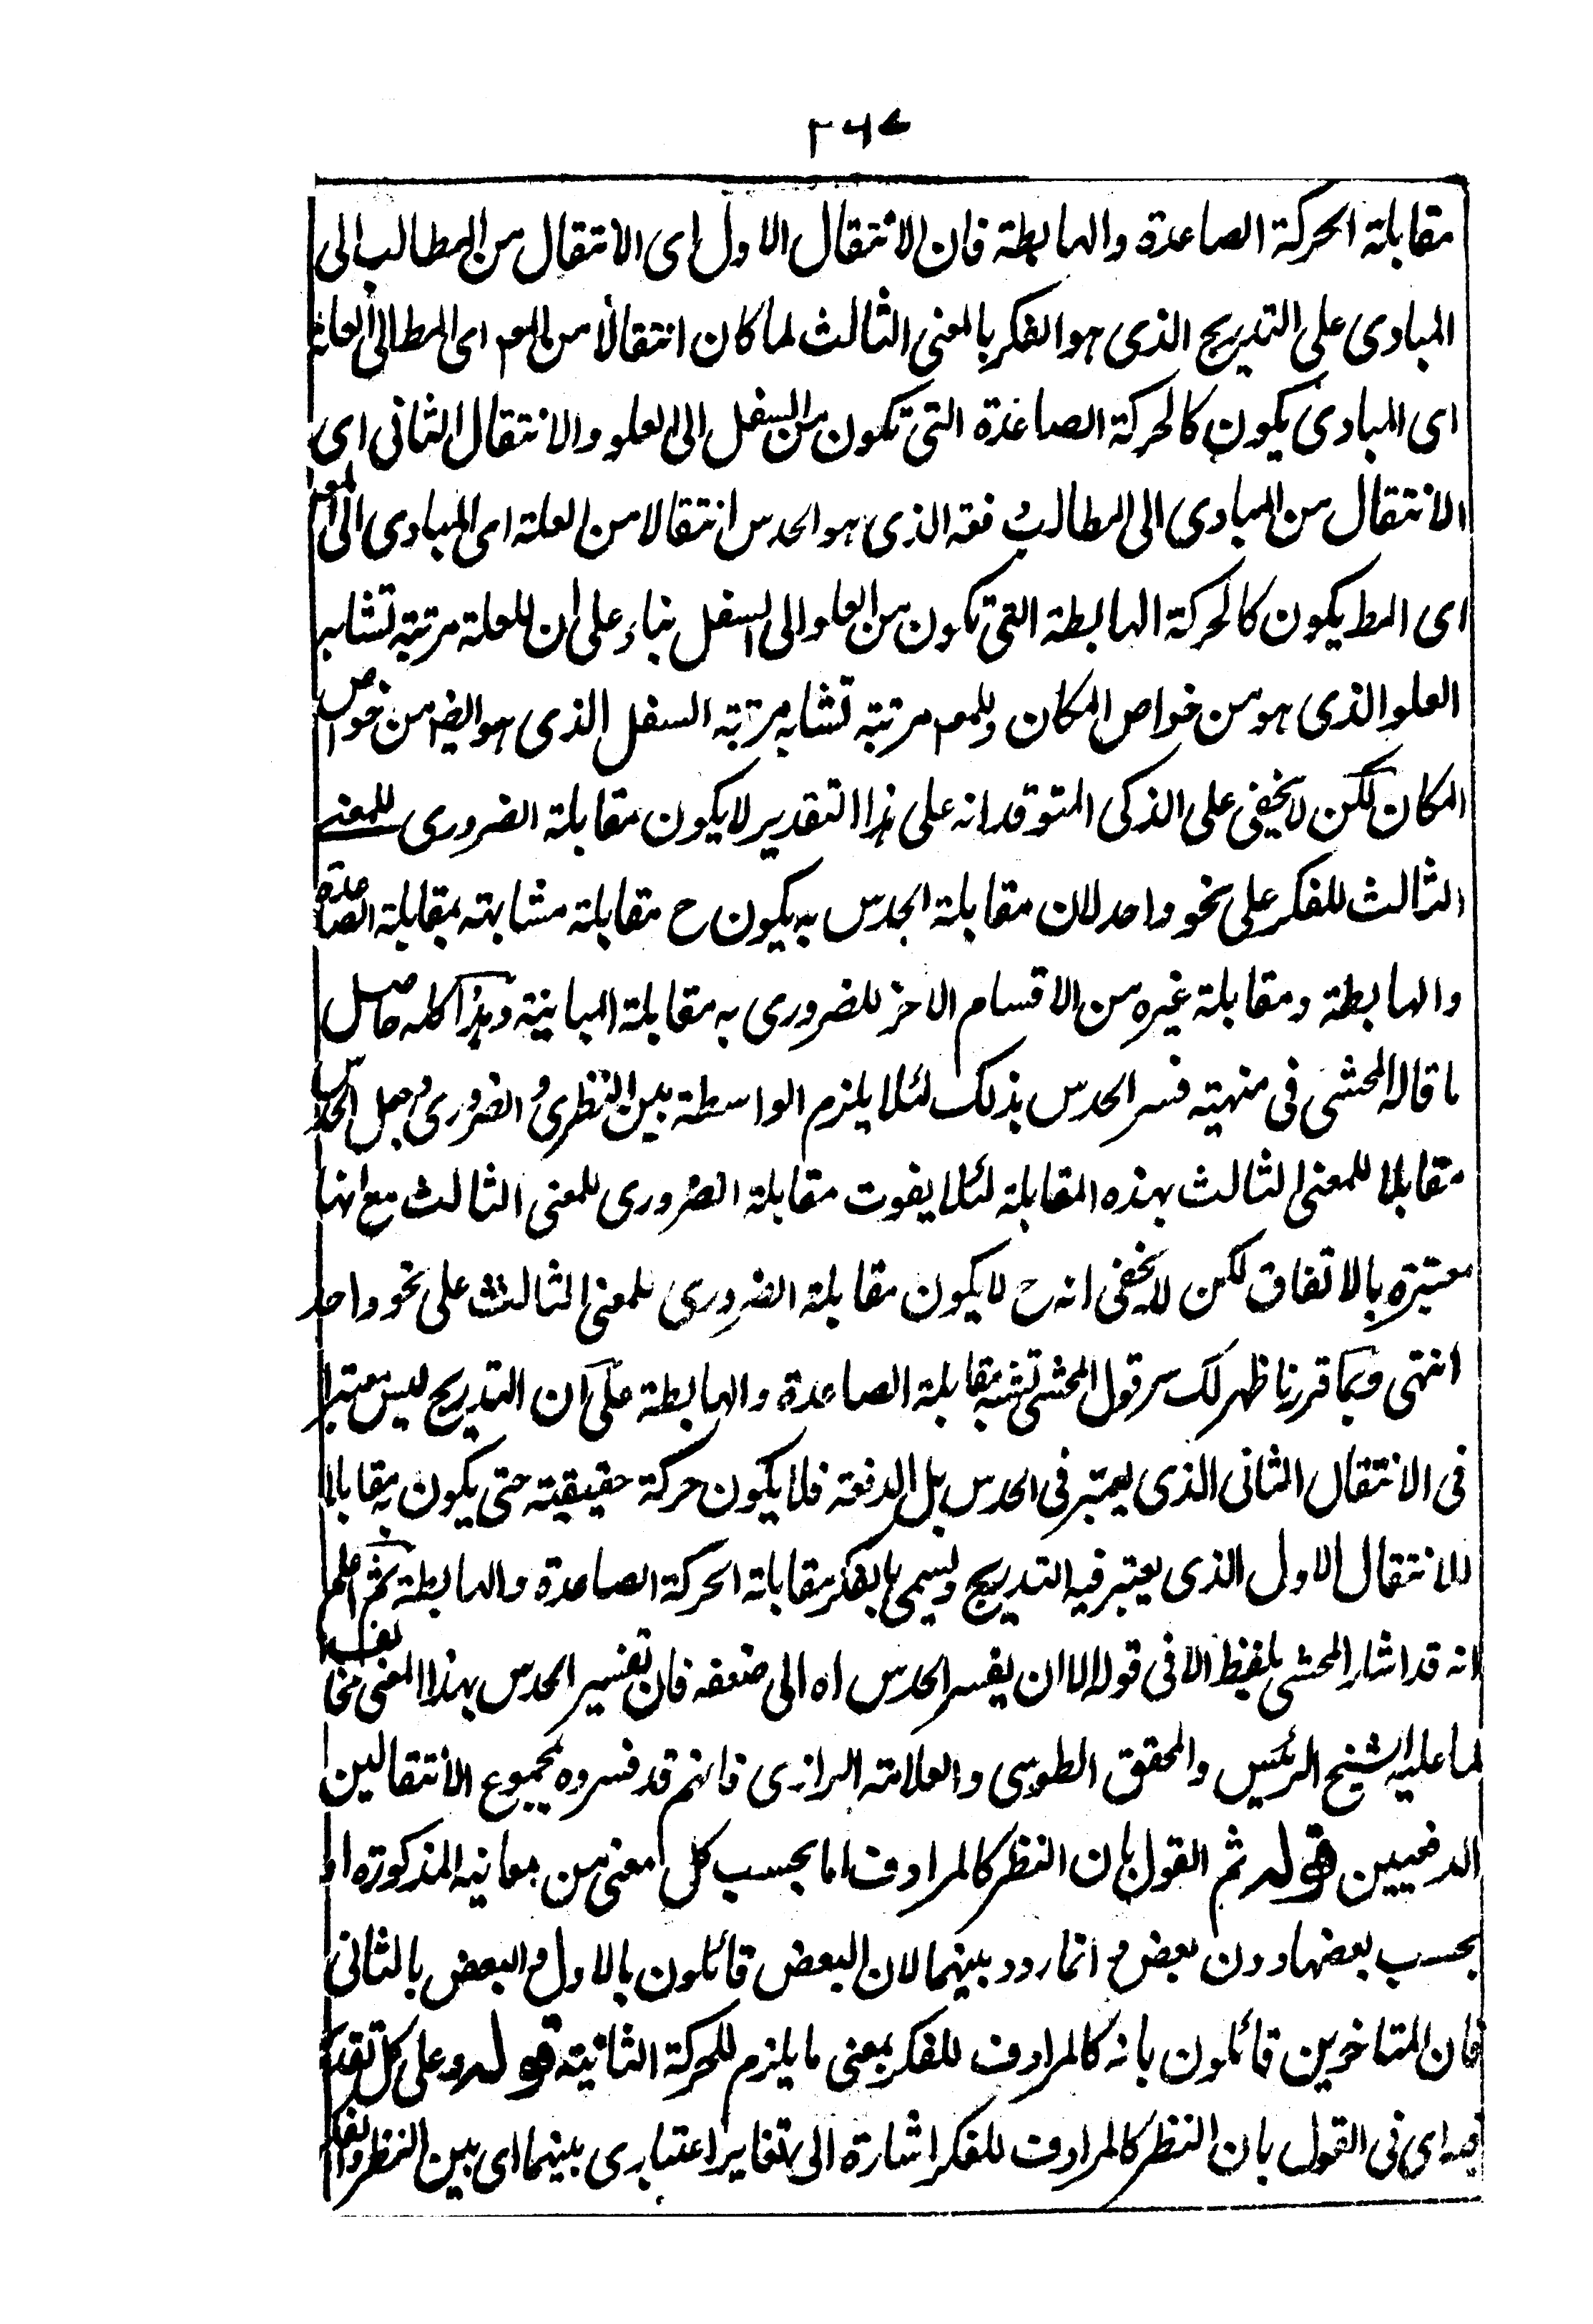 ٢٦٧
مقابلة الحركة الصاعدة والهابطة فان الانتقال الاول اى الانتقال من المطالب الى
المبادى على التدريج الذى هو الفكر بالمعنى الثالث لما كان انتقالا من المعم اى المطا الى العلة
اى المبادى يكون كالحركة الصاعدة التى تكون من السفل الى العلو والانتقال الثانى اى
الانتقال من المبادى الى المطالب دفعة الذى هو الحدس انتقالا من العلة اى المبادى الى المعم
اى المط يكون كالحركة الهابطة التى تكون من العلو الى السفل بناء على ان للعلة مرتبة تشابه
العلو الذى هو من خواص المكان وللمعم مرتبة تشابه مرتبة السفل الذى هو ايضا من خواص
المكان لكن لا يخفى على الذكى المتوقد انه على هذا التقدير لا يكون مقابلة الضرورى للمعنى
الثالث للفكر على نحو واحد لان مقابلة الحدس به يكون ح مقابلة مشابهته بمقابلة الصاعدة
والهابطة ومقابلة غيره من الاقسام الاخر للضرورى به مقابلة المباينة وهذا كله حاصل
ما قاله المحشى فى منهيته فسر الحدس بذلك لئلا يلزم الواسطة بين النظرى والضرورى وجعل الحدس
مقابلا للمعنى الثالث بهذه المقابلة لئلا يفوت مقابلة الضرورى للمعنى الثالث مع انها
معتبرة بالاتفاق لكن لا يخفى انه ح لا يكون مقابلة الضرورى للمعنى الثالث على نحو واحد
انتهى وبما قررنا ظهر لك سر قول المحشى تشبه مقابلة الصاعدة والهابطة على ان التدريج ليس معتبرا
فى الانتقال الثانى الذى يعتبر فى الحدس بل الدفعة فلا يكون حركة حقيقية حتى يكون به مقابلا
للانتقال الاول الذى يعتبر فيه التدريج ويسمى بالفكر مقابلة الحركة الصاعدة والهابطة ثم اعلم
انه قد اشار المحشى بلفظ الا فى قوله الا ان يفسر الحدس اه الى ضعفه فان تفسير الحدس بهذا المعنى مخالف
لما عليه الشيخ الرئيس والمحقق الطوسى والعلامة الرازى فانهم قد فسروه بمجموع الانتقالين
الدفعيين قوله ثم القول بان النظر كالمرادف اما بحسب كل معنى من معانيه المذكورة او
بحسب بعضها دون بعض وانما ردد بينهما لان البعض قائلون بالاول والبعض بالثانى
فان المتاخرين قائلون بانه كالمرادف للفكر بمعنى ما يلزم للحركة الثانية قوله وعلى كل تقدير
فيه اى فى القول بان النظر كالمرادف للفكر اشارة الى تغاير اعتبارى بينهما اى بين النظر والفكر